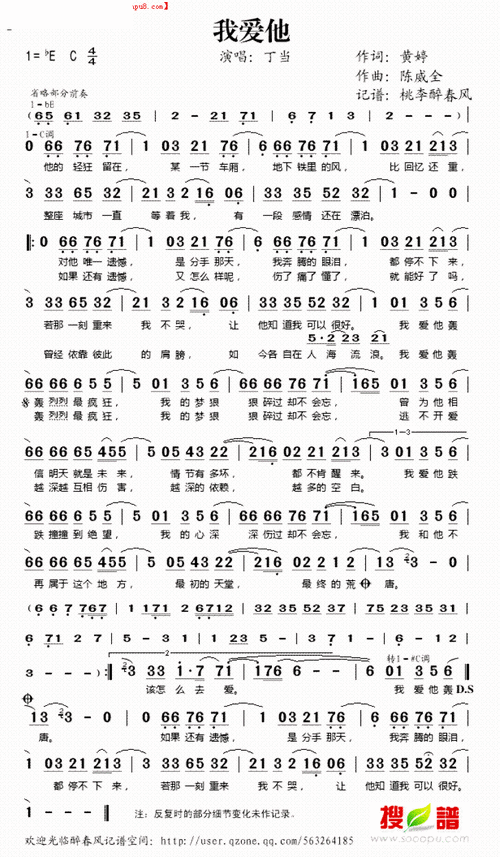 pu8.com】
我爱他
1=♭E C 4/4 演唱：丁当 作词：黄婷
作曲：陈威全
记谱：桃李醉春风
省略部分前奏
1-bE
(65 61 32 35 | 2 - 21 71 | 6 7 1 3 | 2 - - - )
1-C调
0 66 76 71 | 1 03 21 76 | 6 66 76 71 | 1 03 21 213
他的 轻狂 留在， 某 一节 车厢， 地下 铁里 的风， 比 回忆 还 重，
3 33 65 32 | 21 3 2 16 06 | 33 35 52 32 | 1 - 0 0
整座 城市 一直 等着 我， 有 一段 感情 还在 漂泊。
‖: 0 66 76 71 | 1 03 21 76 | 6 66 76 71 | 1 03 21 213
对他 唯一 遗憾， 是 分手 那天， 我奔 腾的 眼泪， 都 停不 下 来，
如果 还有 遗憾， 又 怎么 样呢， 伤了 痛了 懂了， 就 能好 了 吗，
3 33 65 32 | 21 3 2 16 06 | 33 35 52 32 | 1 01 3 56
若那 一刻 重来 我 不 哭， 让 他知 道我 可以 很好。 我 爱 他轰
5·2 23 5
曾经 依靠 彼此 的 肩膀， 如 今各 自在 人海 流浪。 我 爱 他轰
66 66 6 55 | 5 01 3 56 | 66 66 76 71 | 165 01 3 56
轰 烈烈 最 疯狂， 我 的 梦狠 狠碎 过却 不会 忘， 曾 为 他相
轰 烈烈 最 疯狂， 我 的 梦狠 狠碎 过却 不会 忘， 逃 不 开爱
1-3
66 66 65 455 | 5 05 43 22 | 216 02 21 213 | 3 01 3 56
信 明天 就是 未来， 情 节有 多坏， 都 不肯 醒 来。 我 爱 他跌
越 深越 互相 伤害， 越 深的 依赖， 越 多的 空 白。
66 66 6 55 | 5 01 3 56 | 66 66 76 71 | 165 01 3 56
跌 撞撞 到 绝望， 我 的 心深 深伤 过却 不会 忘， 我 和 他不
66 66 65 455 | 5 05 43 22 | 216 02 21 2 12 | 3 - 0
再 属于 这个 地方， 最 初的 天堂， 最 终的 荒 唐。
2
转1-#C调
该怎 么 去 爱。 我 爱 他轰 D.S
唐。 如果 还有 遗憾， 是 分手 那天， 我奔 腾的 眼泪，
1 03 21 213 | 3 33 65 32 | 21 3 2 16 06 | 33 35 52 32
都 停不 下 来， 若那 一刻 重来 我 不 哭， 让 他知 道我 可以 很好。
1 - - - ‖ 注：反复时的部分细节变化未作记录。
搜谱
www.sooopu.com
欢迎光临醉春风记谱空间：http://user.qzone.qq.com/563264185